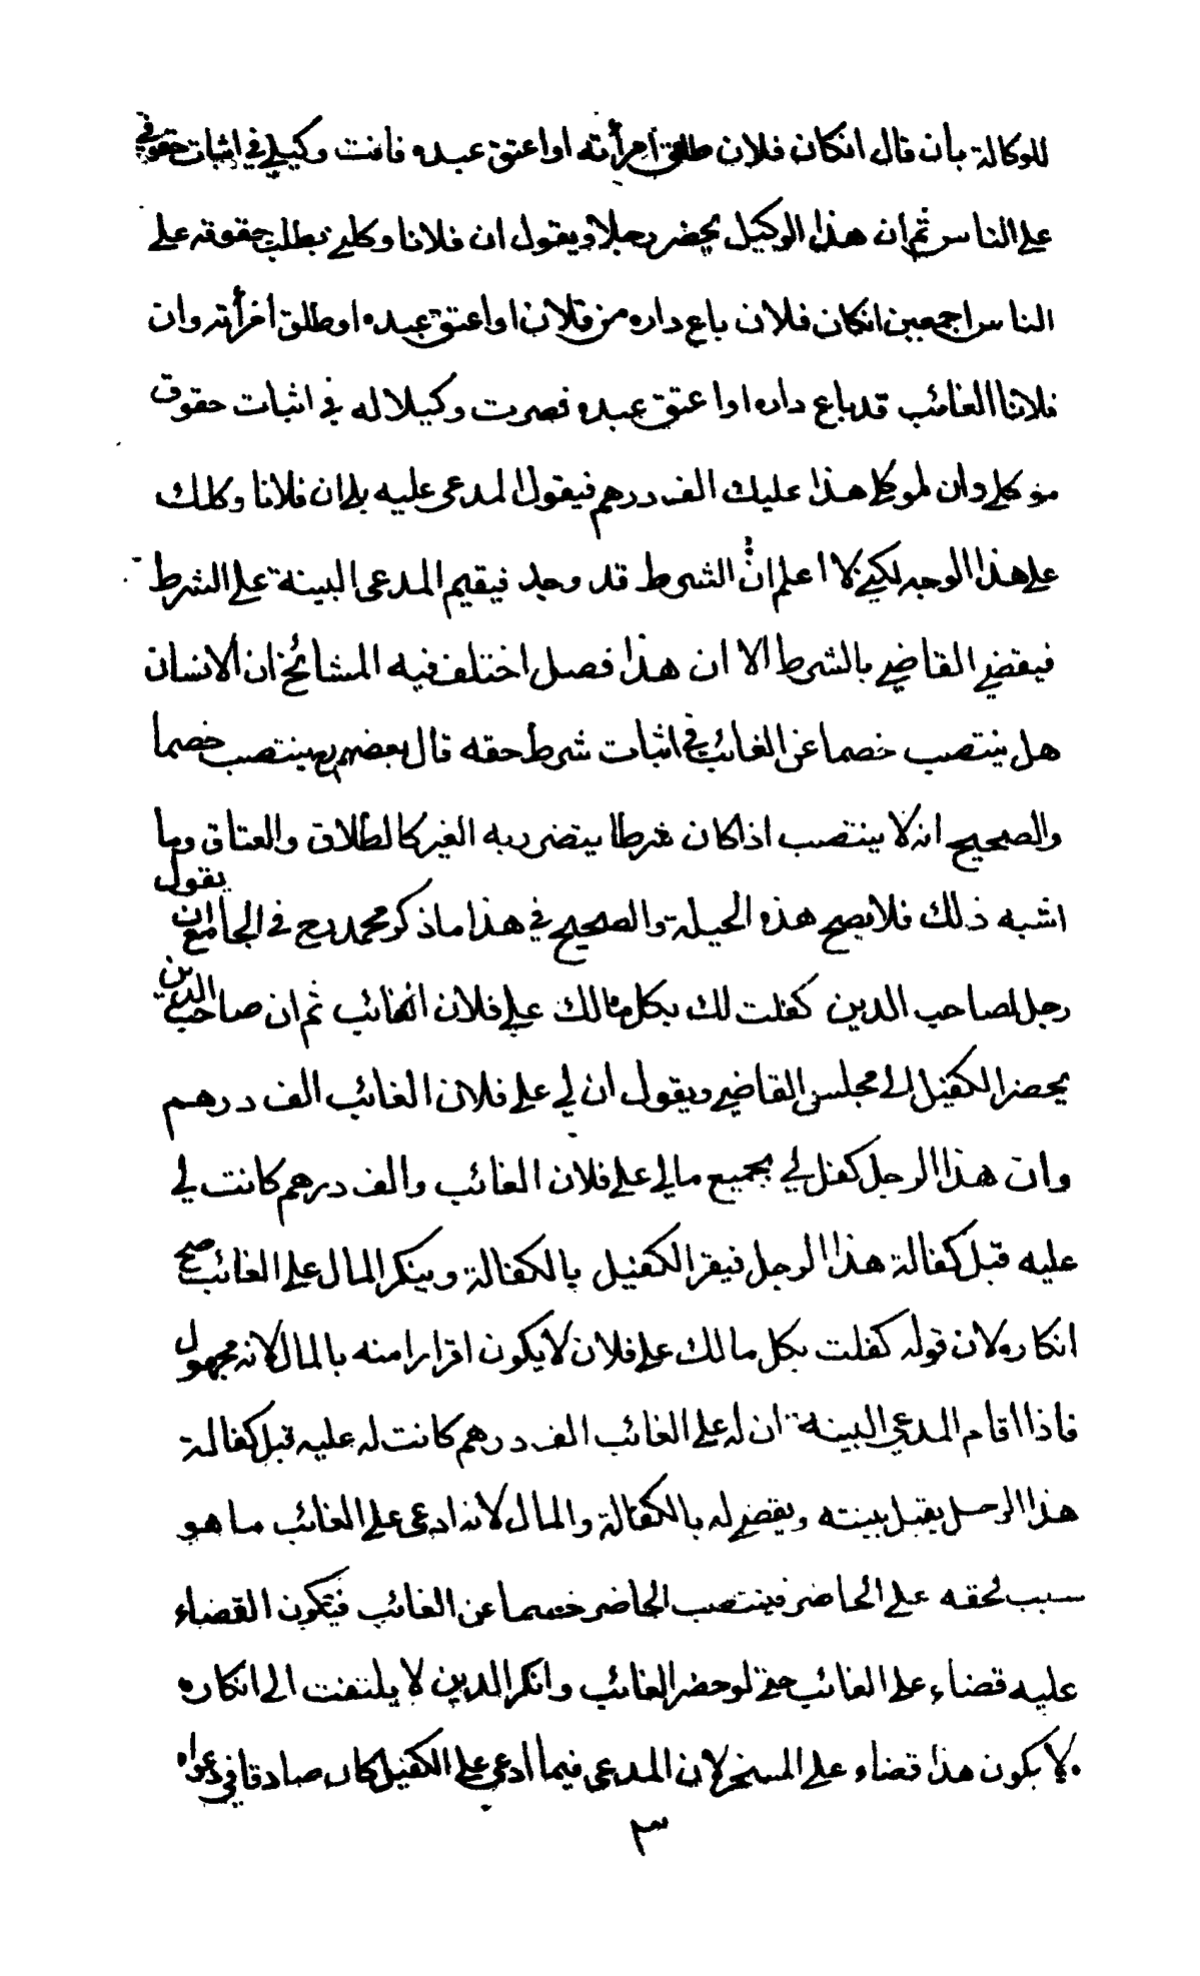 للوكالة بان قال انكان فلان طلق امرأته او اعتق عبده فانت وكيلي في اثبات حقوقي
على الناس ثم ان هذا الوكيل يحضر رجلا ويقول ان فلانا وكلني بطلب حقوقه على
الناس اجمعين انكان فلان باع داره من فلان او اعتق عبده او طلق امرأته وان
فلانا الغائب قد باع داره او اعتق عبده فصرت وكيلا له في اثبات حقوق
موكلي وان لموكلي هذا عليك الف درهم فيقول المدعى عليه بلى ان فلانا وكلك
على هذا الوجه لكني لا اعلم ان الشرط قد وجد فيقيم المدعى البينة على الشرط
فيقضي القاضي بالشرط الا ان هذا فصل اختلف فيه المشائخ ان الانسان
هل ينتصب خصما عن الغائب في اثبات شرط حقه قال بعضهم ينتصب خصما
والصحيح انه لا ينتصب اذا كان شرطا يتضرر به الغير كالطلاق والعتاق وما
اشبه ذلك فلا يصح هذه الحيلة والصحيح في هذا ما ذكر محمد رح في الجامع ان يقول
رجل لصاحب الدين كفلت لك بكل مالك على فلان الغائب ثم ان صاحب الدين
يحضر الكفيل الى مجلس القاضي ويقول ان لي على فلان الغائب الف درهم
وان هذا الرجل كفل لي بجميع مالي على فلان الغائب والف درهم كانت لي
عليه قبل كفالة هذا الرجل فيقر الكفيل بالكفالة وينكر المال على الغائب صح
انكاره لان قوله كفلت بكل مالك على فلان لا يكون اقرارا منه بالمال لانه مجهول
فاذا اقام المدعي البينة ان له على الغائب الف درهم كانت له عليه قبل كفالة
هذا الرجل يقبل بينته ويقضى له بالكفالة والمال لانه ادعى على الغائب ما هو
سبب لحقه على الحاضر فينتصب الحاضر خصما عن الغائب فيكون القضاء
عليه قضاء على الغائب حتى لو حضر الغائب وانكر الدين لا يلتفت الى انكاره
ولا يكون هذا قضاء على المسخر لان المدعى فيما ادعى على الكفيل كان صادقا في دعواه
٣